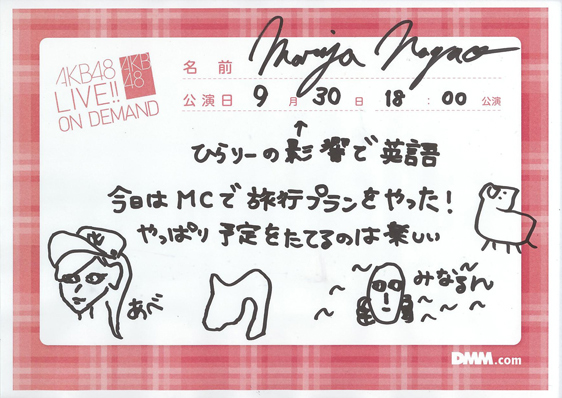 AKB48
LIVE!!
ON DEMAND
AKB
48
名前 Mariya Nagao
公演日 9月30日 18:00公演
↑
ひらりーの影響で英語
今日はMCで旅行プランをやった!
やっぱり予定をたてるのは楽しい
みなるん
あべ
DMM.com